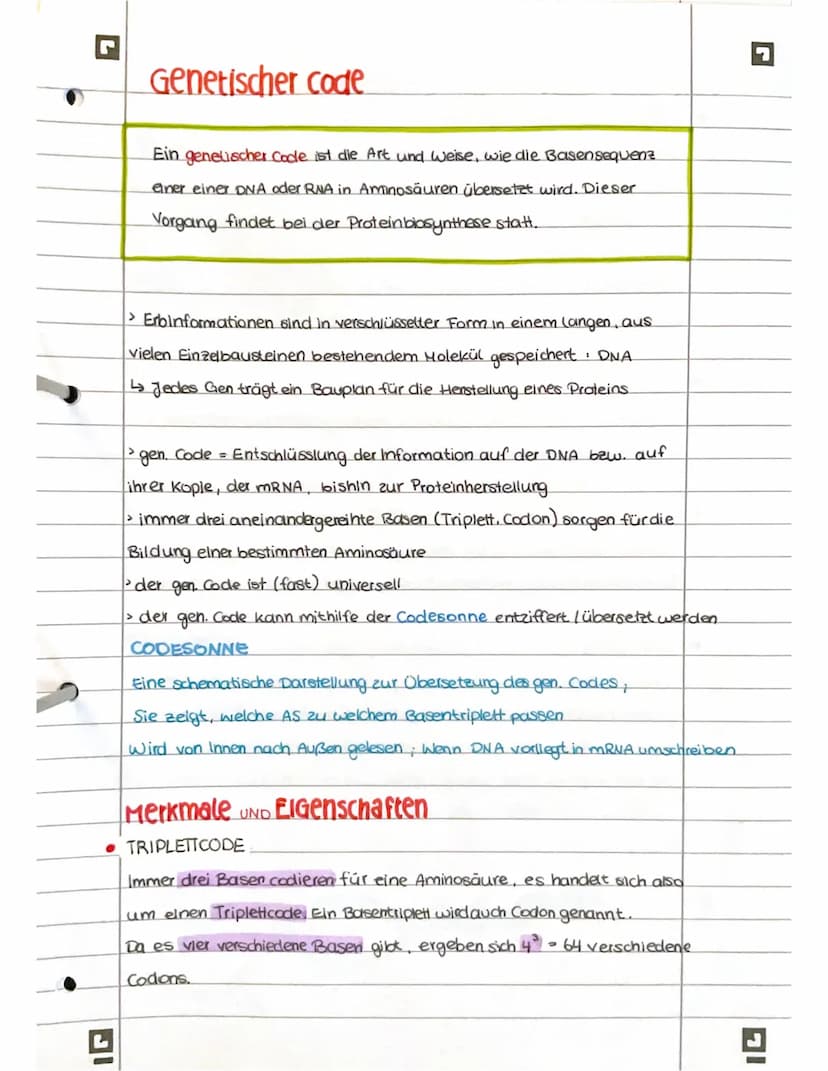 Genetischer Code
Ein genetischer Code ist die Art und Weise, wie die Basensequenz
einer einer DNA oder RNA in Aminosäuren übersetzt wird. Dieser
Vorgang findet bei der Proteinbiosynthese statt.
> Erbinformationen sind in verschlüsselter Form in einem langen, aus
vielen Einzelbausteinen bestehendem Molekül gespeichert : DNA
↳ Jedes Gen trägt ein Bauplan für die Herstellung eines Proteins
> gen. Code = Entschlüsslung der Information auf der DNA bzw. auf
ihrer Kopie, der mRNA, bishin zur Proteinherstellung
> immer drei aneinandergereihte Basen (Triplett, Codon) sorgen für die
Bildung einer bestimmten Aminosäure
> der gen. Code ist (fast) universell
> der gen. Code kann mithilfe der Codesonne entziffert / übersetzt werden
CODESONNE
Eine schematische Darstellung zur Übersetzung des gen. Codes ;
Sie zeigt, welche AS zu welchem Basentriplett passen
Wird von Innen nach Außen gelesen ; Wenn DNA vorliegt in mRNA umschreiben
Merkmale UND Eigenschaften
• TRIPLETTCODE
Immer drei Basen codieren für eine Aminosäure, es handelt sich also
um einen Triplettcode. Ein Basentriplett wird auch Codon genannt.
Da es vier verschiedene Basen gibt, ergeben sich 4³ = 64 verschiedene
Codons.